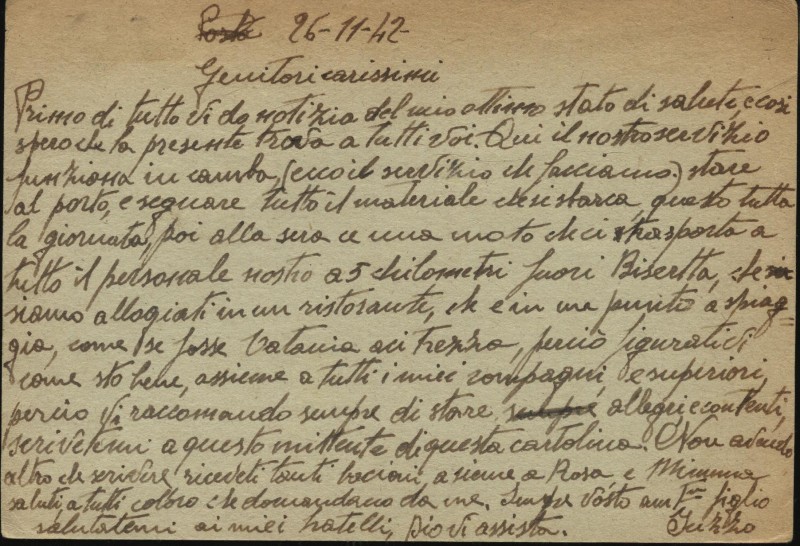 26-11-42-
Genitori carissimi
Primo di tutto vi do notizia del mio ottimo stato di salute, e cosi
spero che la presente trova a tutti voi. Qui il nostro servizio
funziona in (ecco il servizio che facciamo) stare
al porto, e segnare tutto il materiale che si sbarca, questo tutta
la giornata, poi alla sera ce una moto che ci trasporta a
tutto il personale nostro a 5 chilometri fuori Biserta, che
siamo allogiati in un ristorante, che e in un punto a spiag-
gia, come se fosse Catania aci Trezza, perciò figurativi
come sto bene, assieme a tutti i miei compagni, e superiori,
perciò vi raccomando sempre di stare sempre allegri, e contenti,
scrivetemi a questo mittente di questa cartolina. Non avendo
altro che scrivere riceveti tanti bacioni, asieme a Rosa e Mimma
saluti, a tutti coloro che domandano da me. Sempre vosto figlio
salutatemi ai miei fratelli, Dio vi assista.